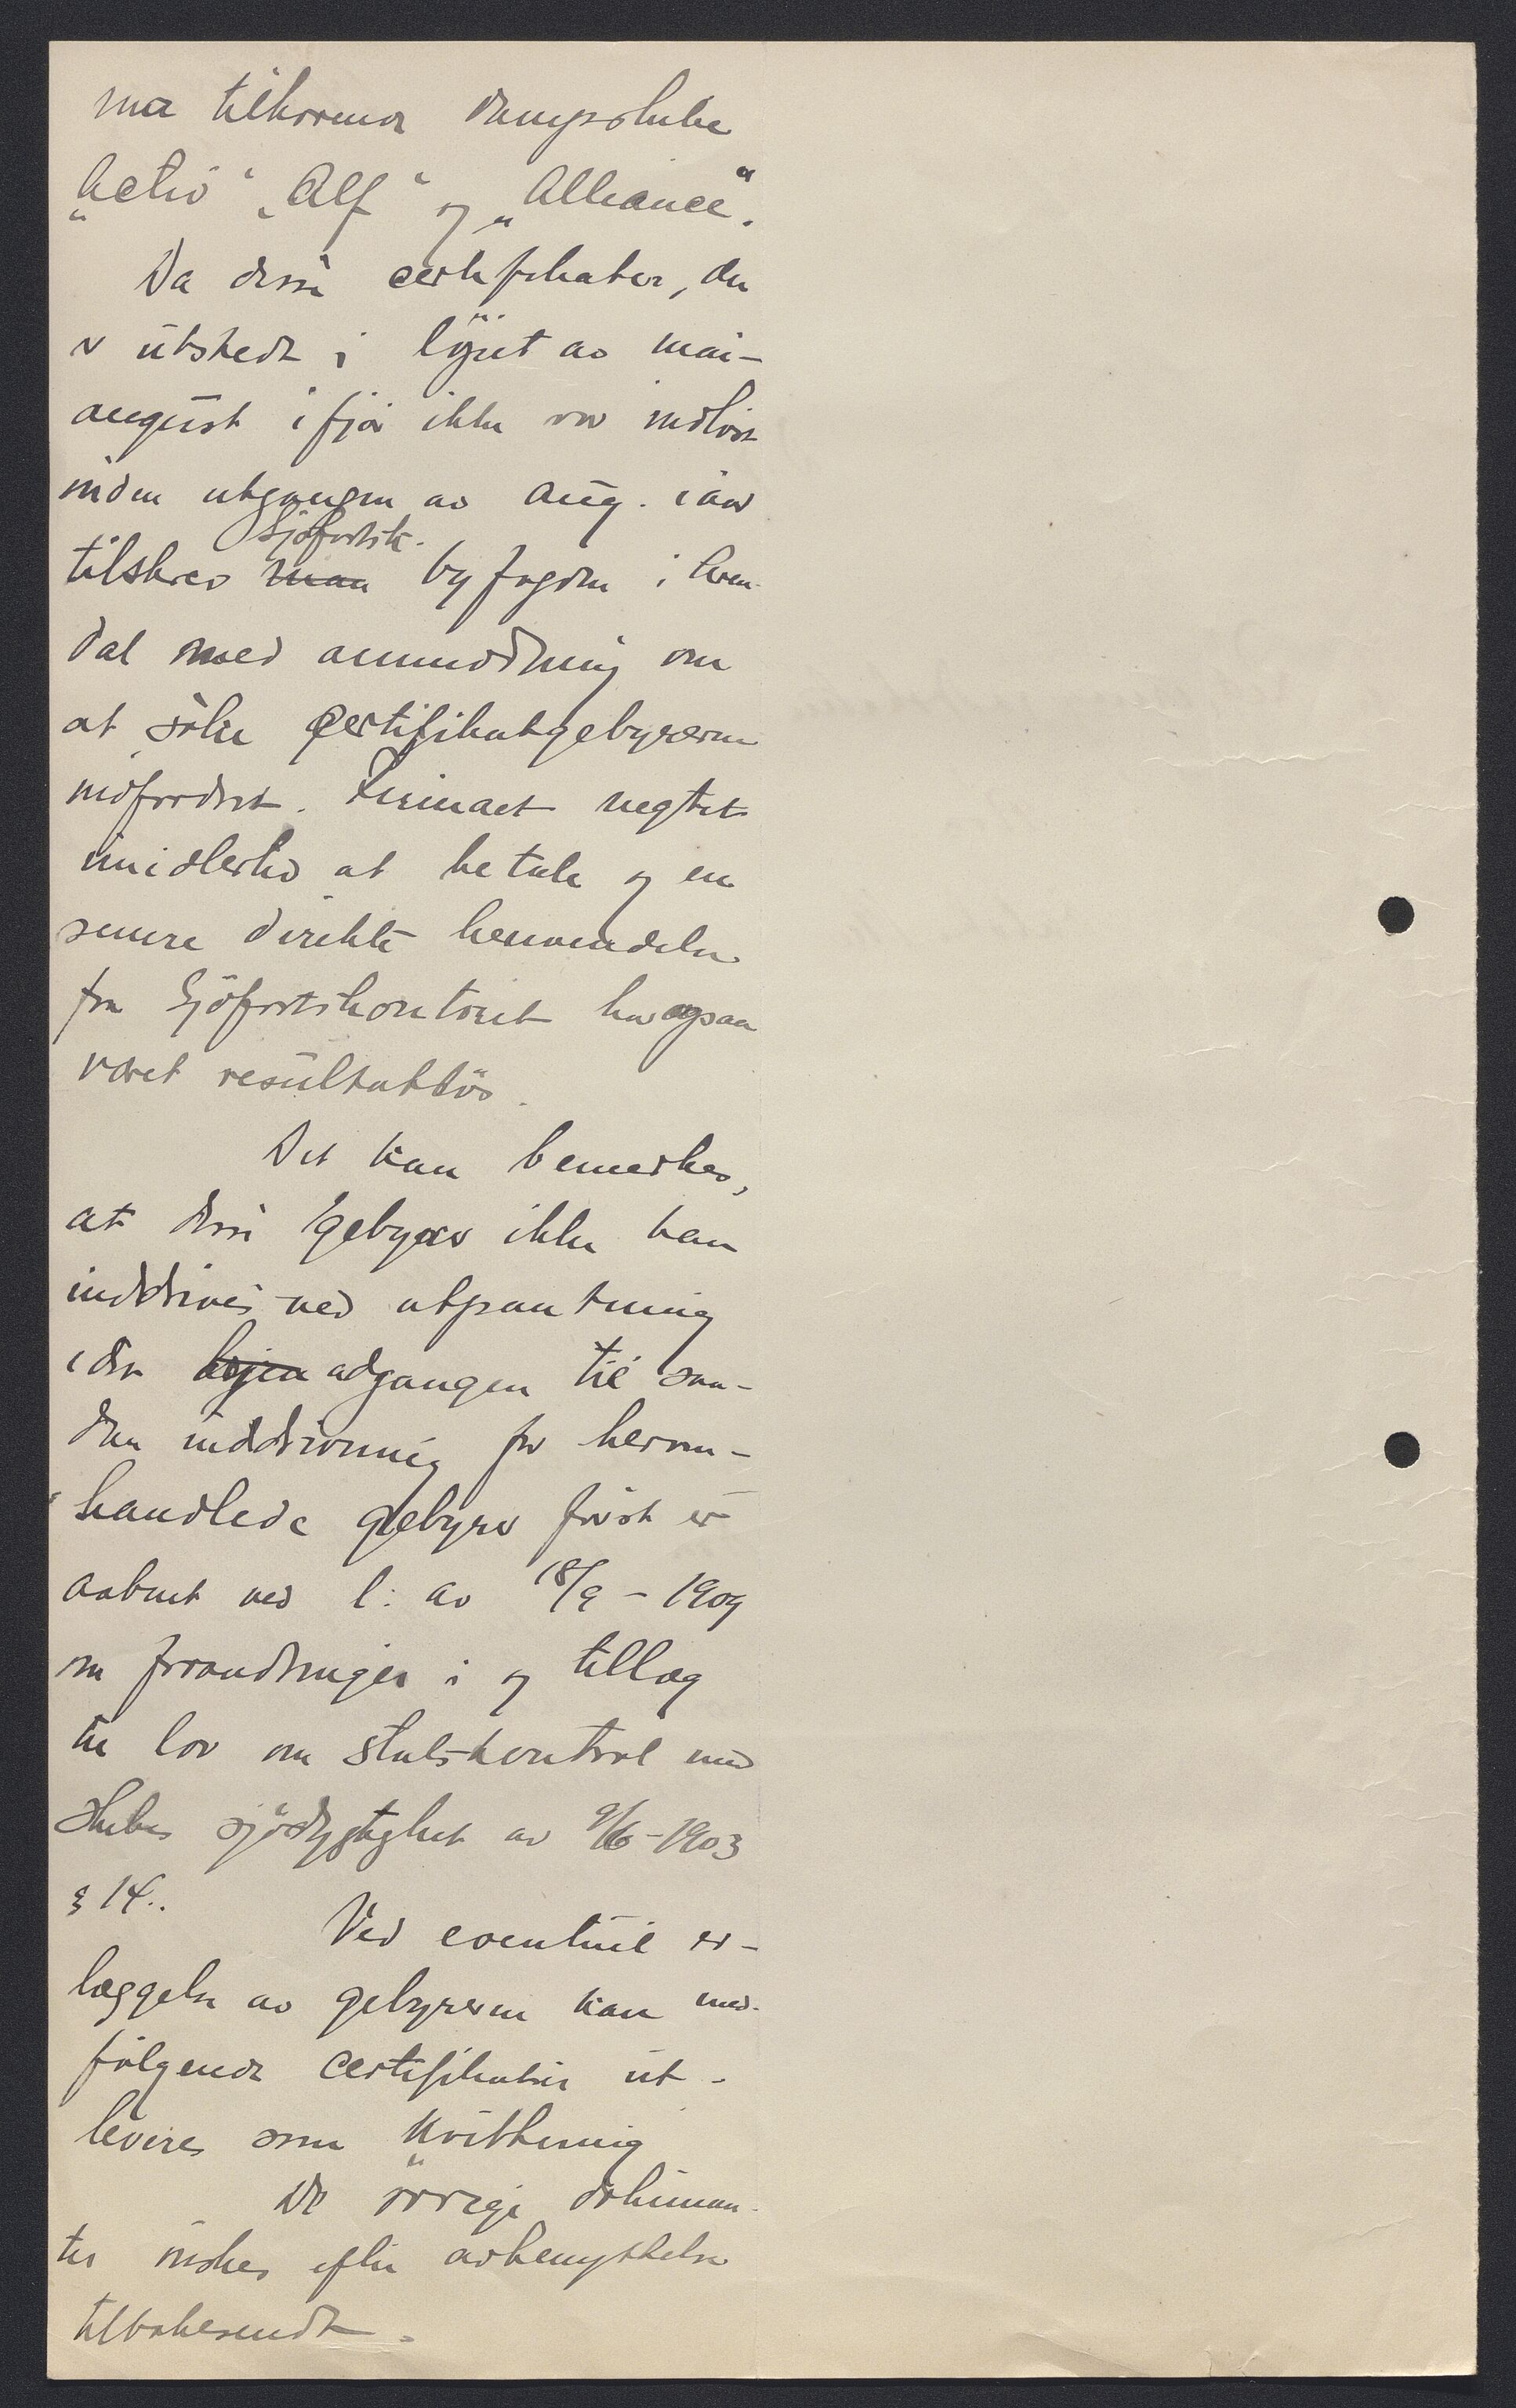 ma tilhørende dampskibe
„Activ“ „Alf“ og „Alliance“.
Da disse certifikater, der
er utstedt i løpet av mai-
august ifjor ikke var indløst
inden utgangen av aug. iaar
Sjøfartsk.
tilskrev man byfogden i Aren-
dal med anmodning om
at søke certifikatgebyrerne
indfordret. Firmaet negtet
imidlertid at betale og en
senere direkte henvendelse
fra Sjøfartskontoret har ogsaa
været resultatløs.
Det kan bemerkes,
at disse gebyrer ikke kan
inddrives ved utpantning
idet adgangen til saa-
dan inddrivning for herom-
handlede gebyrer først er
aabnet ved l. av 18/9 - 1909
om forandringer i og tillæg
til lov om statskontrol med
skibes sjødygtighet av 9/6-1903
§ 14..
Ved eventuel er-
læggelse av gebyrerne kan med-
følgende certifikater ut-
leveres som kvittering
De øvrige dokumen-
ter ønskes efter avbenyttelse
tilbakesendt.